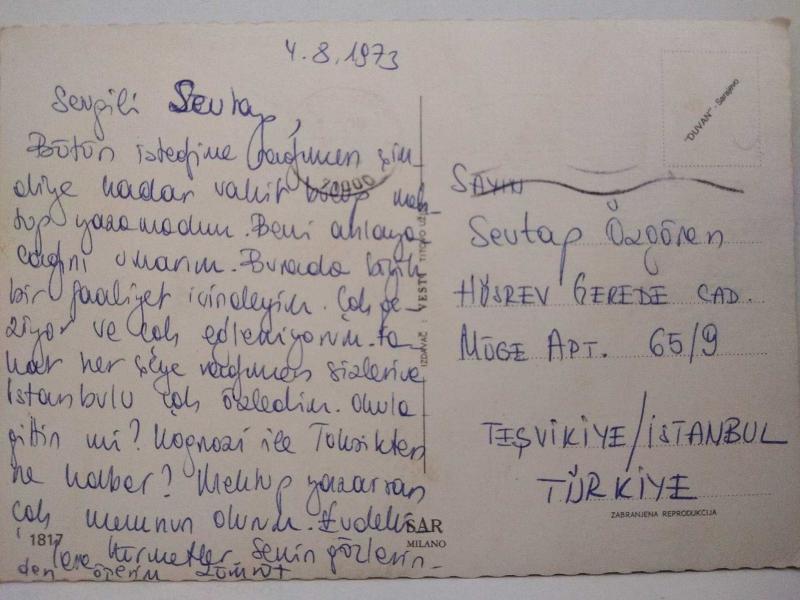 4.8.1973
Sevgili Sevtap,
Bütün isteğime rağmen şim-
diye kadar vakit bulup mek-
tup yazamadım. Beni anlaya
cağını umarım. Burada büyük
bir faaliyet içindeyim. Çok ge-
ziyor ve çok eğleniyorum. Fa-
kat her şeye rağmen sizleri ve
İstanbulu çok özledim. Okula
gittin mi? ile
ne haber? Mektup yazarsan
çok memnun olurum. Evdeki-
lere hürmetler. Senin gözlerin-
den öperim Zümrüt
1817
20000
IZDAVAČ: VESTI TITOVO UŽ
SAR
MILANO
"DUVAN" - Sarajevo
SAYIN
Sevtap Özgören
HÜSREV GEREDE CAD.
MÜGE APT. 65/9
TEŞVİKİYE/İSTANBUL
TÜRKİYE
ZABRANJENA REPRODUKCIJA